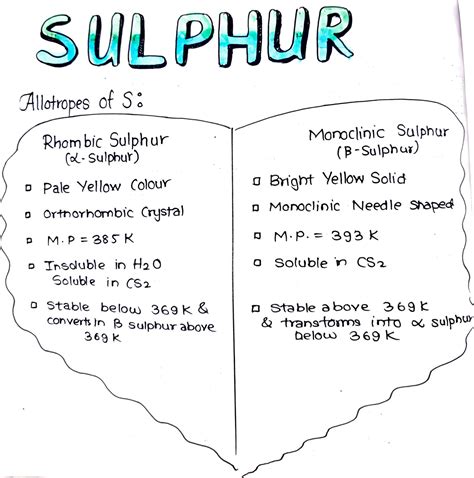 SULPHUR
Allotropes of S:
Rhombic Sulphur
(α-Sulphur)
▫ Pale Yellow Colour
▫ Orthorhombic Crystal
▫ M.P = 385 K
▫ Insoluble in H2O
Soluble in CS2
▫ Stable below 369 K &
converts in β sulphur above
369 K
Monoclinic Sulphur
(β-Sulphur)
▫ Bright Yellow Solid
▫ Monoclinic Needle Shaped
▫ M.P. = 393 K
▫ Soluble in CS2
▫ Stable above 369 K
& transforms into α sulphur
below 369 K